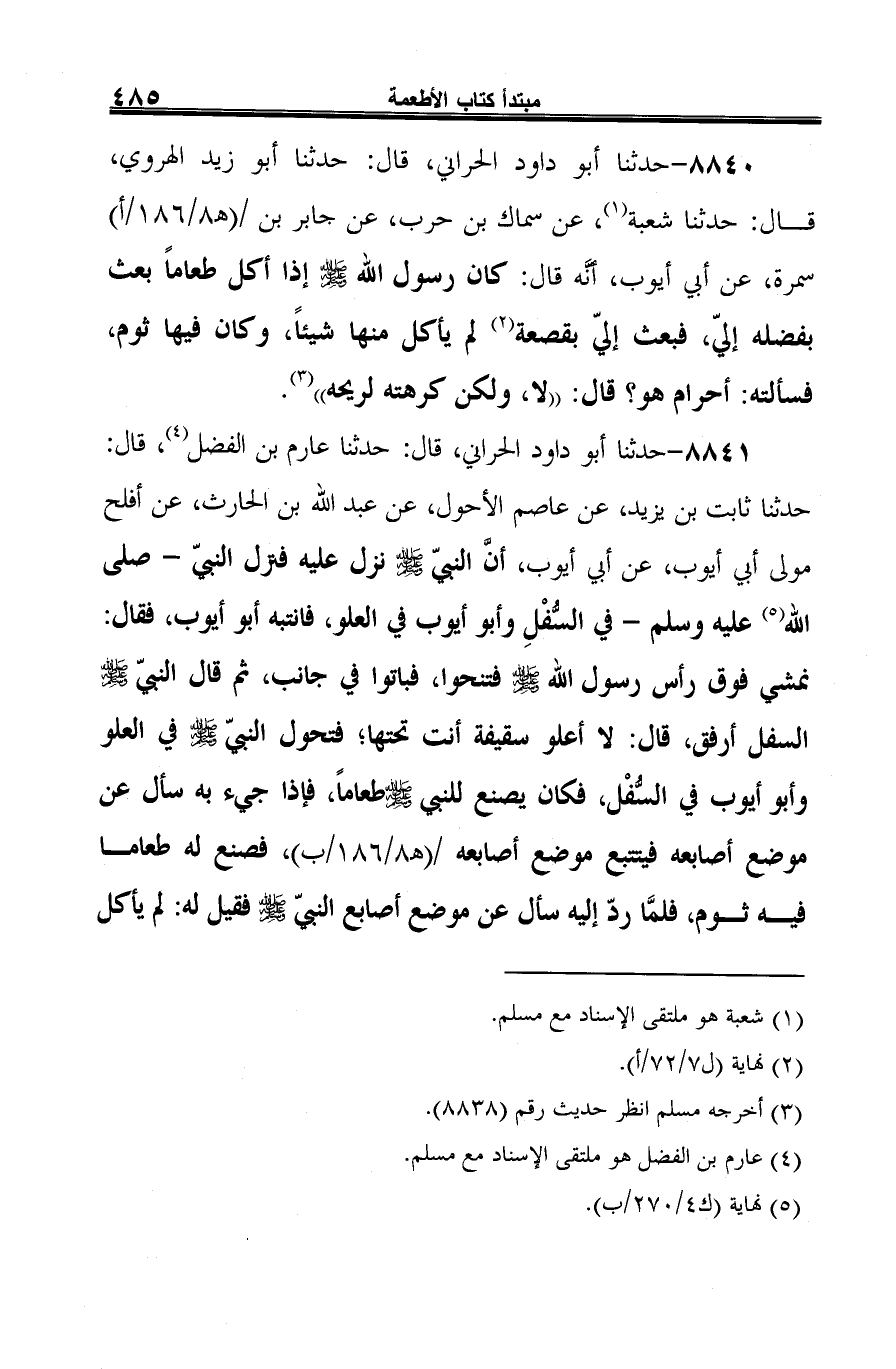 مبتدأ كتاب الأطعمة ٤٨٥
٨٨٤٠-حدثنا أبو داود الحراني، قال: حدثنا أبو زيد الهروي،
قـــال: حدثنا شعبة(١)، عن سماك بن حرب، عن جابر بن /(هـ٨/١٨٦/أ)
سمرة، عن أبي أيوب، أنَّه قال: كان رسول الله ﷺ إذا أكل طعاماً بعث
بفضله إليّ، فبعث إليّ بقصعة(٢) لم يأكل منها شيئاً، وكان فيها ثوم،
فسألته: أحرام هو؟ قال: ((لا، ولكن كرهته لريحه))(٣).
٨٨٤١-حدثنا أبو داود الحراني، قال: حدثنا عارم بن الفضل(٤)، قال:
حدثنا ثابت بن يزيد، عن عاصم الأحول، عن عبد الله بن الحارث، عن أفلح
مولى أبي أيوب، عن أبي أيوب، أنَّ النبيّ ﷺ نزل عليه فنزل النبيّ – صلى
الله(٥) عليه وسلم – في السُّفْلِ وأبو أيوب في العلو، فانتبه أبو أيوب، فقال:
نمشي فوق رأس رسول الله ﷺ فتنحوا، فباتوا في جانب، ثم قال النبيّ ﷺ
السفل أرفق، قال: لا أعلو سقيفة أنت تحتها؛ فتحول النبيّ ﷺ في العلو
وأبو أيوب في السُّفْل، فكان يصنع للنبي ﷺ طعاماً، فإذا جيء به سأل عن
موضع أصابعه فيتتبع موضع أصابعه /(هـ٨/١٨٦/ب)، فصنع له طعامـــا
فيـــه ثـــوم، فلمَّا ردّ إليه سأل عن موضع أصابع النبيّ ﷺ فقيل له: لم يأكل
(١) شعبة هو ملتقى الإسناد مع مسلم.
(٢) نهاية (ل٧/٧٢/أ).
(٣) أخرجه مسلم انظر حديث رقم (٨٨٣٨).
(٤) عارم بن الفضل هو ملتقى الإسناد مع مسلم.
(٥) نهاية (ك٤/٢٧٠/ب).